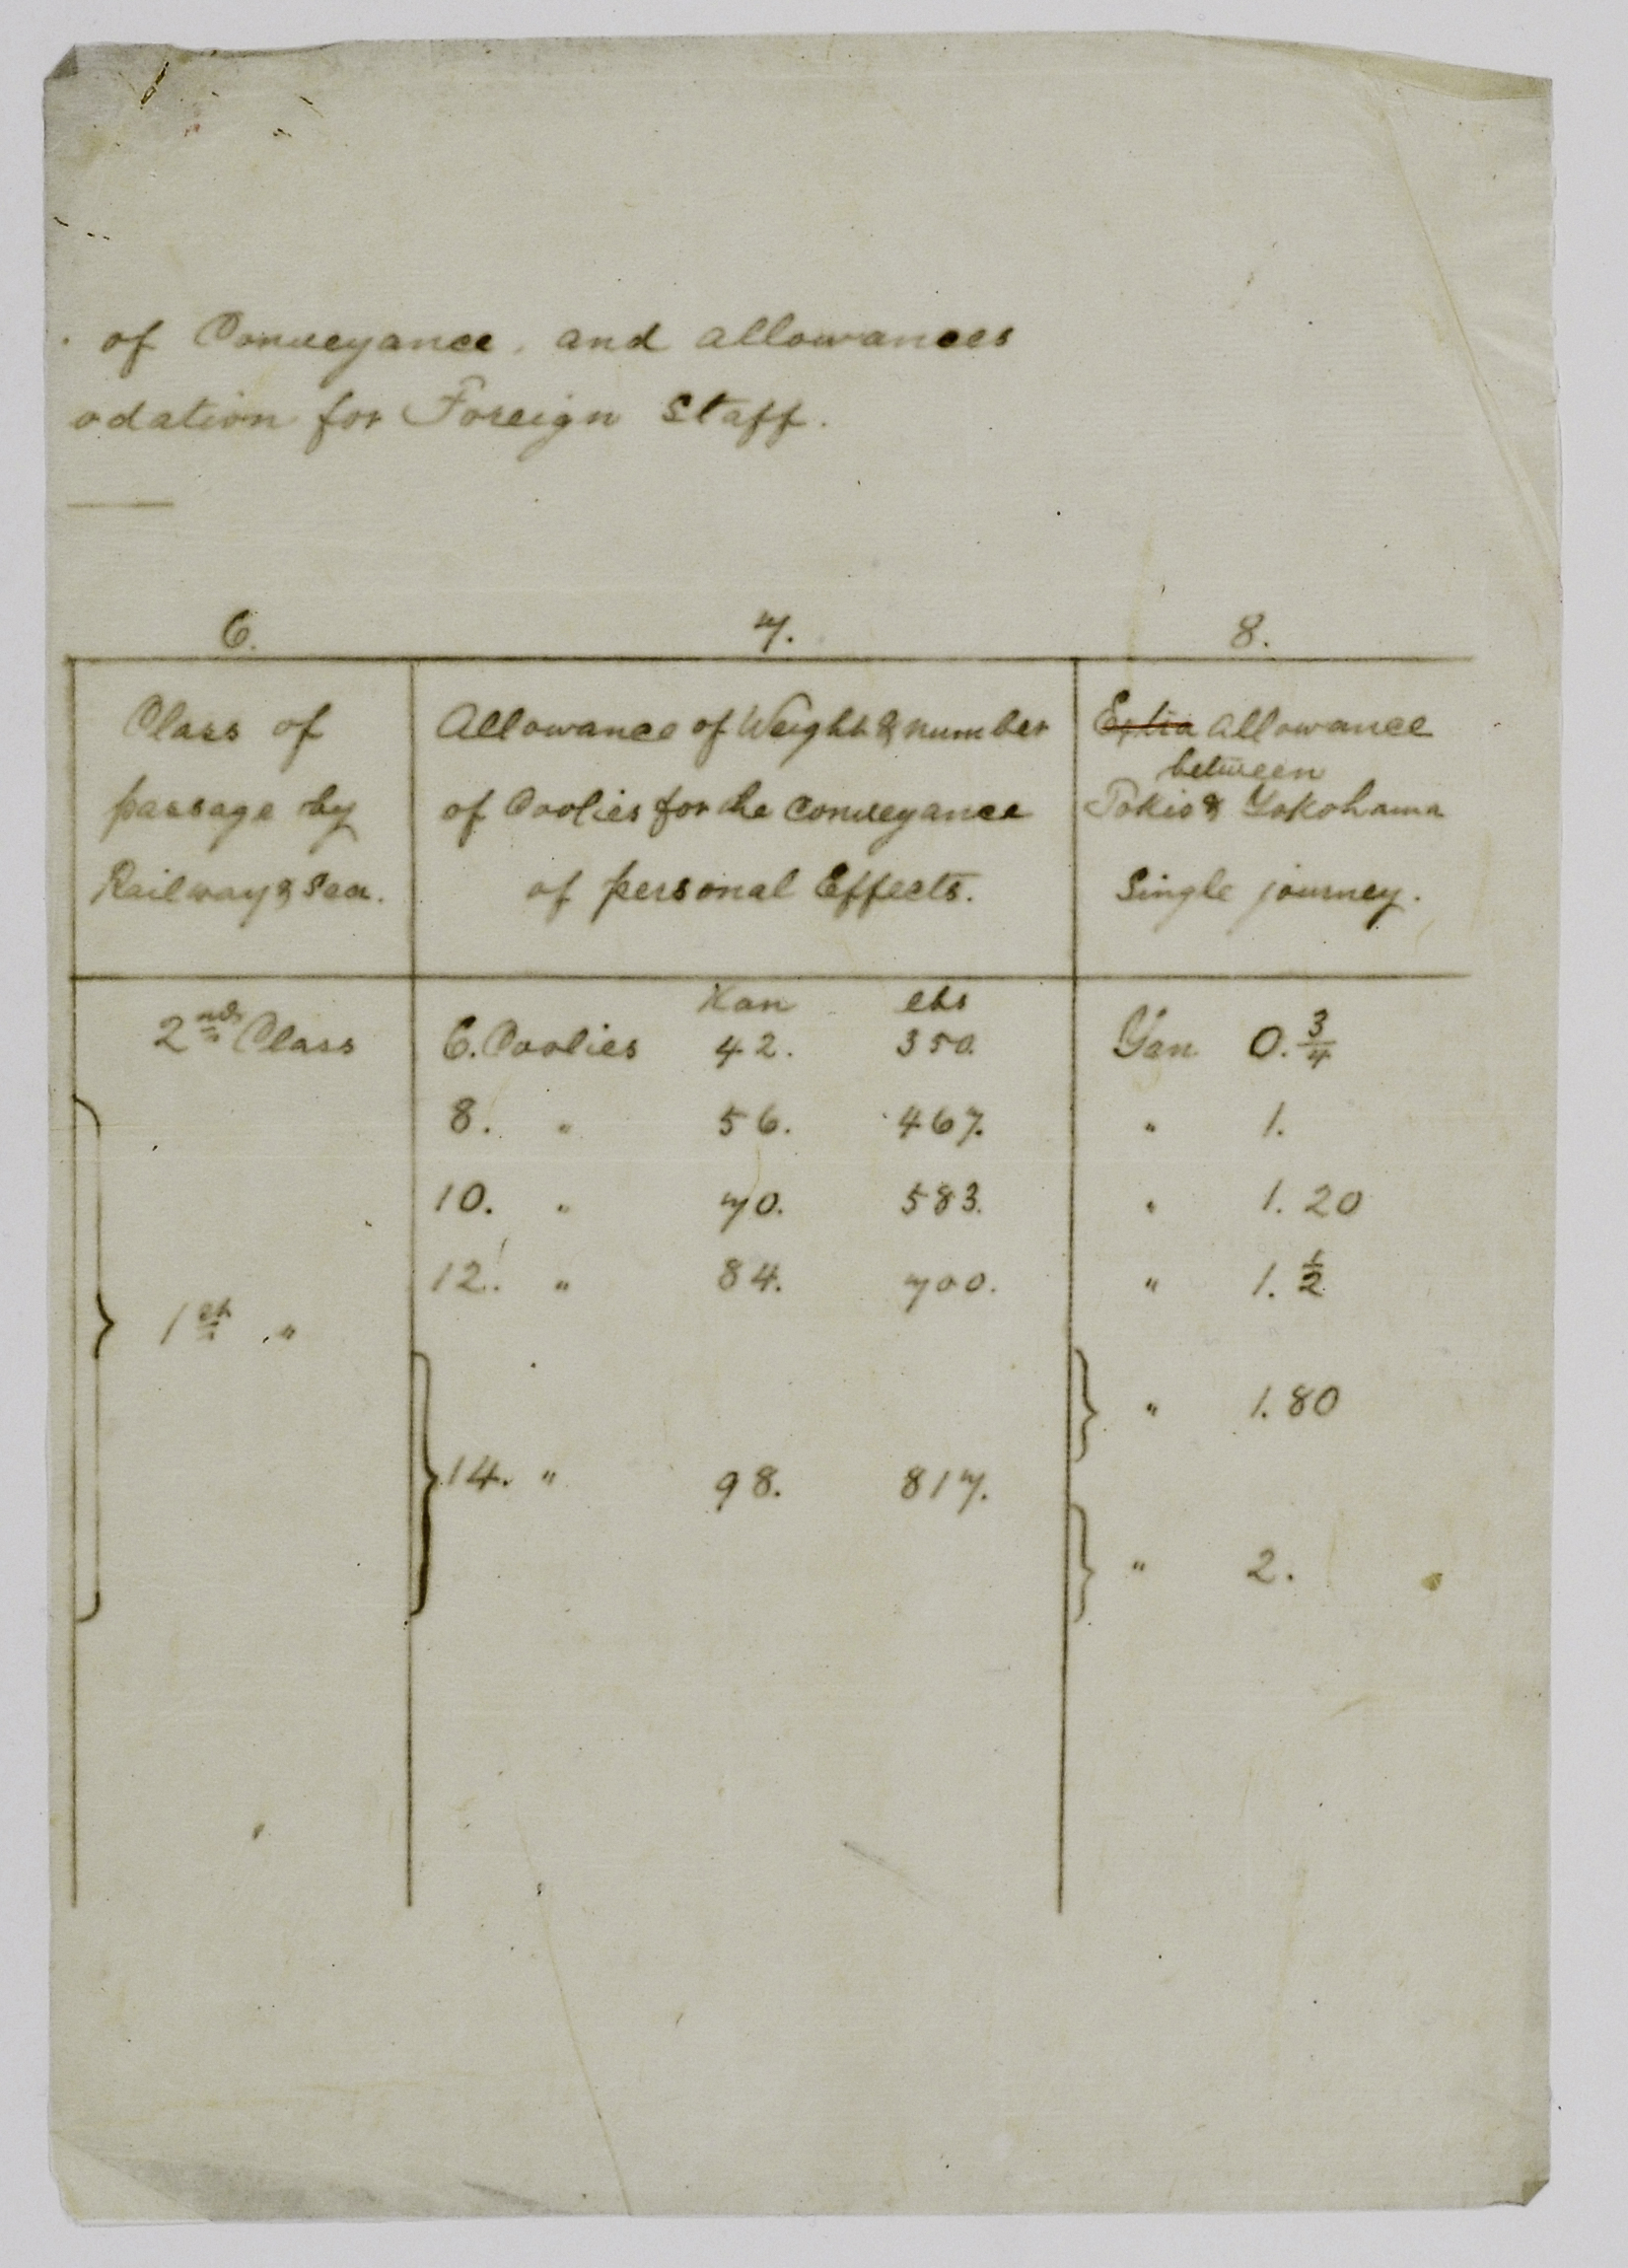 of Conveyance, and allowances
odation for Foreign Staff.
6. 7. 8.
Class of
passage by
Railway & Sea.
Allowance of Weight & number
of Coolies for the Conveyance
of personal Effects.
Extra allowance
between
Tokio & Yokohama
Single journey.
Kan lbs
2nd Class 6. Coolies 42. 350. Yen 0. 3/4
8. " 56. 467. " 1.
10. " 70. 583. " 1.20
12. " 84. 700. " 1. 1/2
1st "
" 1.80
14. " 98. 817.
" 2.